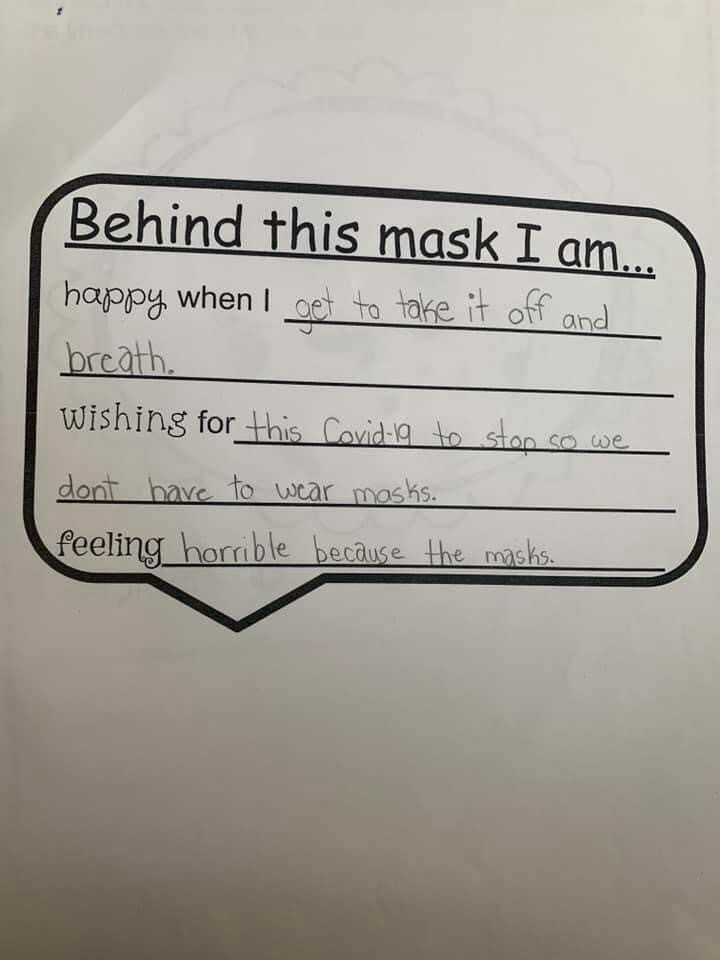 Behind this mask I am...
happy when I get to take it off and
breath.
wishing for this Covid-19 to stop so we
dont have to wear masks.
feeling horrible because the masks.